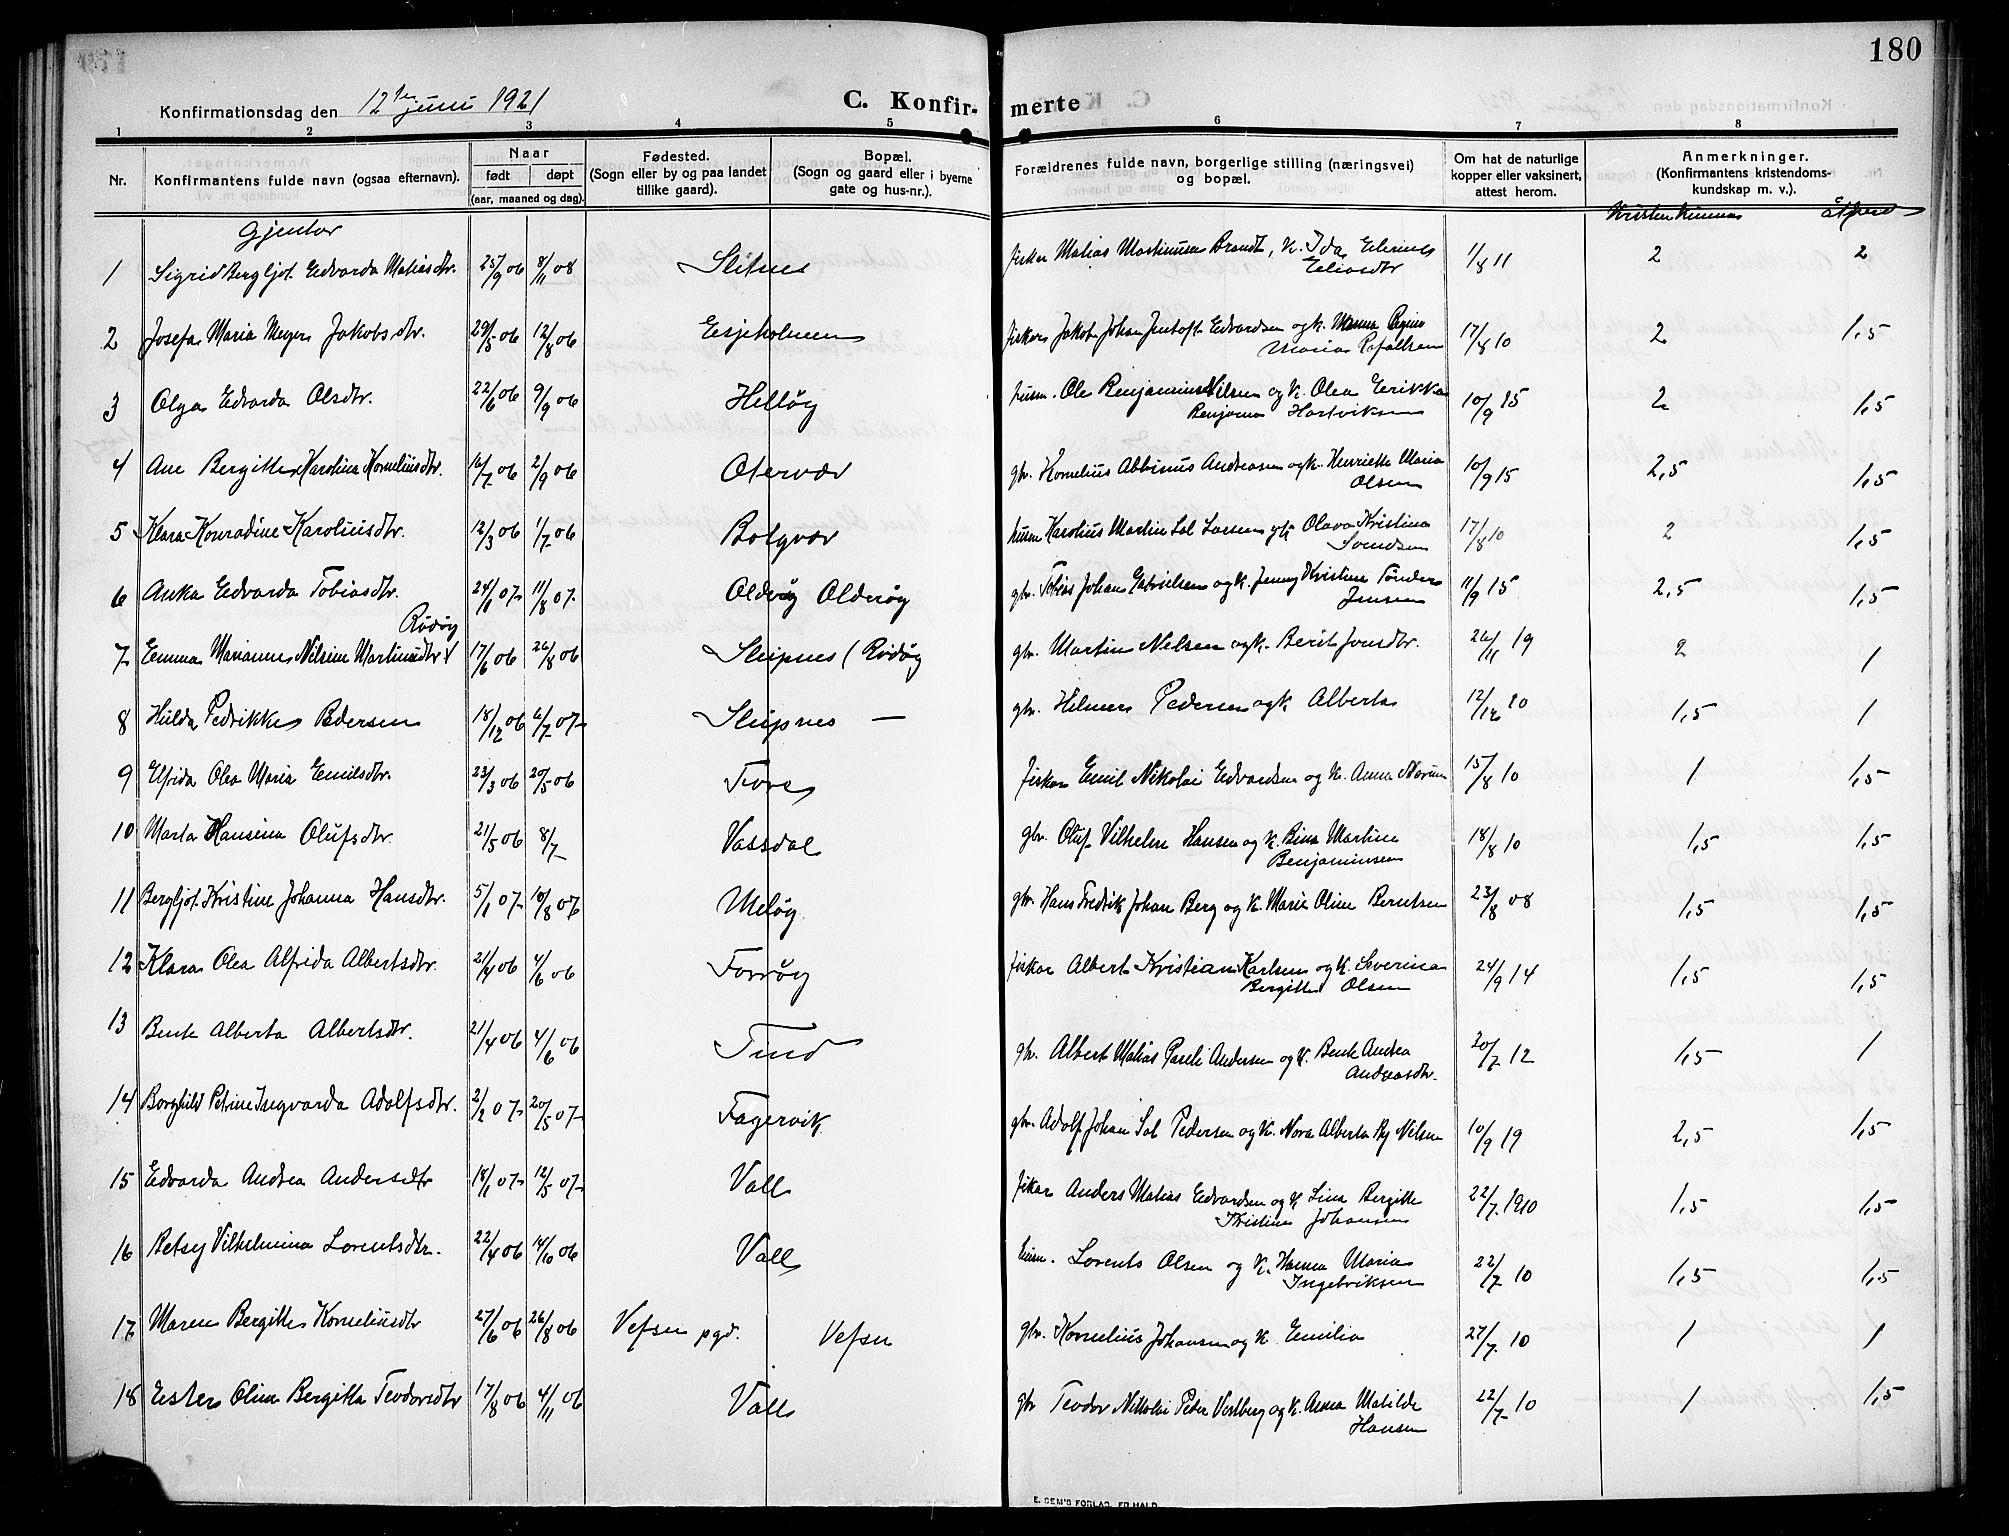 180
Konfirmationsdag den 12te juni 1921
C. Konfir- merte
1 2 3 4 5 6 7 8
Nr. Konfirmantens fulde navn (ogsaa efternavn). Naar født døpt (aar, maaned og dag). Fødested. (Sogn eller by og paa landet tillike gaard). Bopæl. (Sogn og gaard eller i byerne gate og hus-nr.). Forældrenes fulde navn, borgerlige stilling (næringsvei) og bopæl. Om hat de naturlige kopper eller vaksinert, attest herom. Anmerkninger. (Konfirmantens kristendoms-kundskap m. v.).
Gjentor
1 Sigrid Bergljot Edvarda Matiasdtr. 25/9 06 8/11 08 Slitnes fisker Matias Martinusen Brandt, k. Ida Elerines Eliasdtr 1/8 11 2 2
2 Josefa Maria Meyer Jakobsdtr. 29/5 06 12/8 06 Esjeholmen fisker Jakob Johan Jentoft Edvardsen og k. Regine Maria Rafallsen 17/8 10 2 1,5
3 Olga Edvarda Olsdtr. 22/6 06 9/9 06 Helløy husm. Ole Benjaminsen Nilsen og k. Olea Erikka Benjamin Hartviksen 10/9 15 2 1,5
4 Ane Bergitte Karolina Korneliusdtr. 16/7 06 2/9 06 Otervær gbr. Kornelius Albinus Andreasen og k. Henriette Maria Olsen 10/9 15 2,5 1,5
5 Klara Konradine Karoliusdtr. 12/3 06 1/7 06 Bolgvær husm Karolius Martin Sal Larsen og k Olava Kristina Svendsen 17/8 10 2 1,5
6 Anka Edvarda Tobiasdtr. 24/1 07 11/8 07 Oldrøy Oldrøy gbr. Tobias Johan Gabrielsen og k. Jenny Kristine Tønder Jensen 11/9 15 2,5 1,5
Rødøy
7 Emma Marianne Nilsine Martinsdtr 17/6 06 26/8 06 Sleipnes (Rødøy gbr. Martin Nelsen og k. Berit Jonsdtr. 26/11 19 2 1
8 Hulda Fedrikke Pedersen 18/12 06 6/7 07 Sleipnes — gbr. Helmer Pedersen og k Alberta 12/12 10 1,5 1
9 Elfrida Olea Maria Emilsdtr. 23/3 06 20/5 06 Fore fisker Emil Nikolai Edvardsen og k. Anna Marum 15/8 10 1 1,5
10 Marta Hansina Olufsdtr. 21/5 06 8/7 Vassdal gbr. Oluf Vilhelm Hansen og k. Bina Martina Benjaminsen 18/8 10 1,5 1,5
11 Bergljot Kristine Johanna Hansdtr. 5/1 07 10/8 07 Meløy gbr. Hans Fredrik Johan Berg og k. Marie Oline Berntsen 23/8 08 1,5 1,5
12 Klara Olea Alfrida Albertsdtr. 21/4 06 4/6 06 Forrøy fisker Albert Kristian Karlsen og k. Severina Bergitte Olsen 24/9 14 1,5 1,5
13 Bente Alberta Albertsdtr. 21/4 06 4/6 06 Tind gbr. Albert Matias Pareli Andersen og k. Bente Andrea Andreasdtr. 20/7 12 1,5 1
14 Borghild Petrine Ingvarda Adolfsdtr. 2/2 07 20/5 07 Fagervik gbr. Adolf Johan Sal Pedersen og k. Nora Alberta Nilsen 10/9 19 2,5 1,5
15 Edvarda Andrea Andersdtr 18/1 07 12/5 07 Vall fiskar Anders Matias Edvardsen og k Lina Bergitte Kristine Johansen 22/7. 1910 1,5 1,5
16 Betsy Vilhelmina Lorentsdtr. 22/4 06 14/10 06 Vall Lorents Olsen og k. Hanna Maria Ingebriksen 22/7 10 1,5 1,5
17 Maren Bergitte Korneliusdtr 27/6 06 26/8 06 Vefsn pgd. Vefsn gbr. Kornelius Johansen og k. Emilia 27/7. 10 1 1
18 Ester Oline Bergitta Teodorsdtr 17/8 06 4/11 06 Vall gbr Teodor Nikolai Peder Vestberg og k. Anna Matilde Hansen 22/7 10 1 1,5